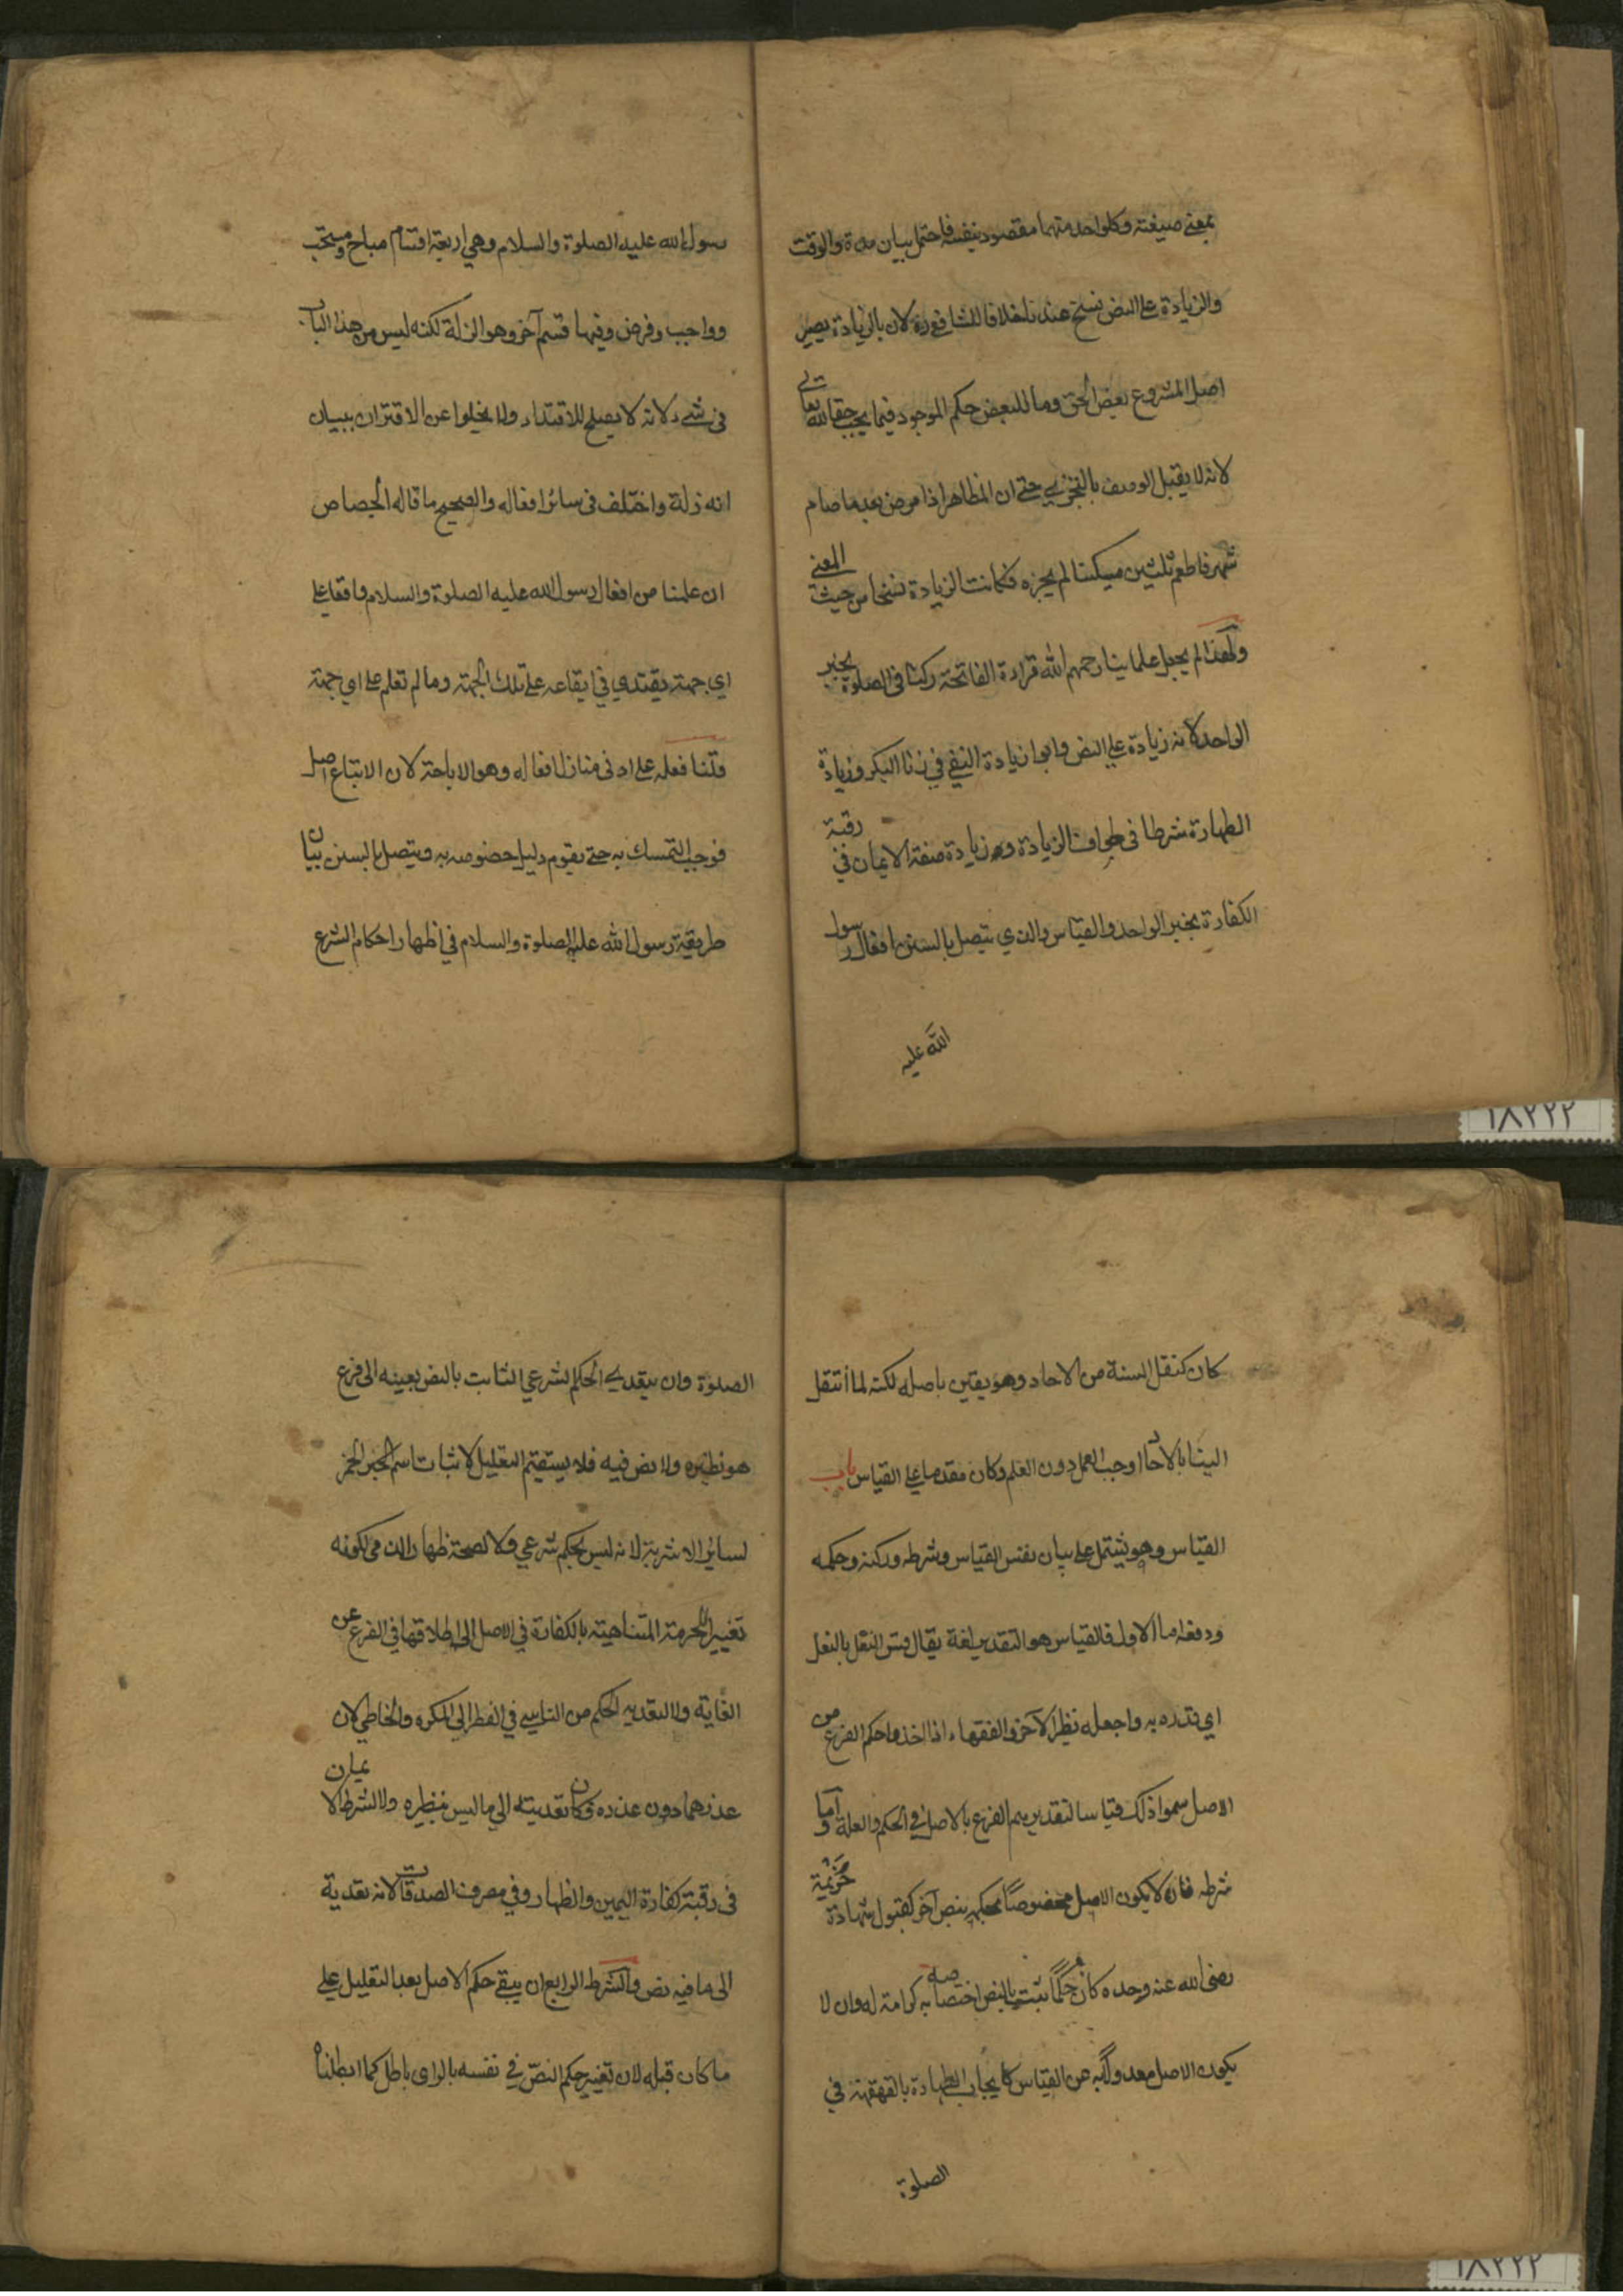 بمعنى صيغته وكلواحد منهما مقصود بنفسه فاحتمل بيان مدة والوقت
والزيادة على النص نسخ عندنا خلافا للشافعي رح لان بالزيادة يصير
اصل المشروع بعض الحق وما للبعض حكم الموجود فيما يجب حقا لله تعالى
لانه لا يقبل الوصف بالتجزي حتى ان المظاهر اذا مرض بعد ما صام
شهر فاطعم ثلثين مسكينا لم يجزه فكانت الزيادة نسخا من حيث المعنى
ولهذا لم يجعل علماينا رحمهم الله قراءة الفاتحة ركنا في الصلوة بخبر
الواحد لانه زيادة على النص وابوا زيادة النفي في زنا البكر وزيادة
الطهارة شرطا في طواف الزيادة وزيادة صفة الايمان في رقبة
الكفارة بخبر الواحد والقياس والذي يتصل بالسنن افعال رسول
الله عليه
رسول الله عليه الصلوة والسلام وهي اربعة اقسام مباح ومستحب
وواجب وفرض وفيها قسم آخر وهو الزلة لكنه ليس من هذا الباب
في شئ لانه لا يصلح للاقتداء ولا يخلوا عن الاقتران ببيان
انه زلة واختلف في سائر افعاله والصحيح ما قاله الجصاص
ان علمنا من افعال رسول الله عليه الصلوة والسلام واقعا على
اي جهة يقتدي في ايقاعه على تلك الجهة وما لم تعلم على اي جهة
قلنا فعله على ادنى منازل افعاله وهو الاباحة لان الاتباع اصل
فوجب التمسك به حتى يقوم دليل خصوصه به ويتصل بالسنن بيان
طريقة رسول الله عليه الصلوة والسلام في اظهار احكام الشرع
كان كنقل السنة من الاحاد وهو يقين باصله لكنه لما انتقل
الينا بالاحاد اوجب العمل دون العلم وكان مقدما على القياس باب
القياس وهو يشتمل على بيان نفس القياس وشرطه وركنه وحكمه
ودفعه اما الاول فالقياس هو التقدير لغة يقال قس النعل بالنعل
اي قدره به واجعله نظير الآخر والفقهاء اذا اخذوا حكم الفرع من
الاصل سموا ذلك قياسا لتقديرهم الفرع بالاصل في الحكم والعلة واما
شرطه فان لا يكون الاصل مخصوصا بحكمه بنص آخر كقبول شهادة خزيمة
رضى الله عنه وحده كان حكما ثبت بالنص اختصاصه به كرامة له وان لا
يكون الاصل معدولا به عن القياس كايجاب الطهارة بالقهقهة في
الصلوة
الصلوة وان يتعدي الحكم الشرعي الثابت بالنص بعينه الى فرع
هو نظيره ولا نص فيه فلا يستقيم التعليل لاثبات اسم الخمر
لسائر الاشربة لانه ليس بحكم شرعي ولا لصحة ظهار الذمى لكونه
تغييرا للحرمة المتناهية بالكفارة في الاصل الى اطلاقها في الفرع عن
الغاية ولا التعديه الحكم من الناسي في الفطر الى المكره والخاطي لان
عذرهما دون عذره فكان تعديته الى ما ليس بنظيره ولا لشرط الايمان
في رقبة كفارة اليمين والظهار وفي مصرف الصدقات لانه تعدية
الى ما فيه نص والشرط الرابع ان يبقى حكم الاصل بعد التعليل على
ما كان قبله لان تغيير حكم النص في نفسه بالراى باطل كما ابطلناه
۱۸۲۲۲
۱۸۲۲۲